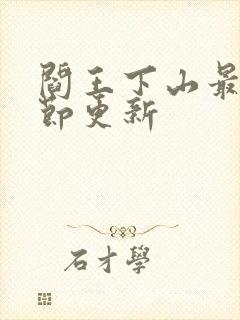 閻王下山最
節更新
石才學